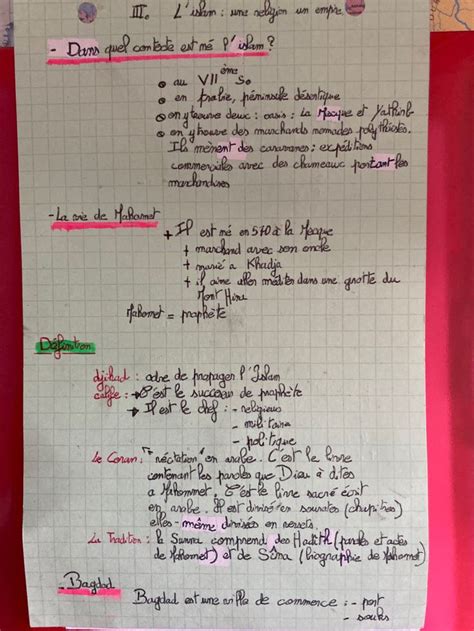 III. L'islam : une religion un empire
- Dans quel contexte est né l'islam ?
au VII ème S.
en Arabie, péninsule désertique
on y trouve deux : oasis : La Mecque et Yathrib
on y trouve des marchands nomades polythéistes.
Ils mènent des caravanes : expéditions
commerciales avec des chameaux portant les
marchandises
- La vie de Mahomet
+ Il est né en 570 à la Mecque
+ marchand avec son oncle
+ marié a Khadja
+ il aime aller méditer dans une grotte du
Mont Hira
Mahomet = prophète
Définition
djihad : ordre de propager l'Islam
calife : → C'est le successeur de prophète
→ Il est le chef : - religieux
- militaire
- politique
Le Coran : "récitation" en arabe. C'est le livre
contenant les paroles que Dieu à dites
a Mahommet. C'est le livre sacré écrit
en arabe. Il est divisé en sourates (chapitres)
elles-même divisées en versets.
La Tradition : la Sunna comprend des Hadith (paroles et actes
de Mahomet) et de Sîna (biographie de Mahomet)
- Bagdad
Bagdad est une ville de commerce : - port
- souks